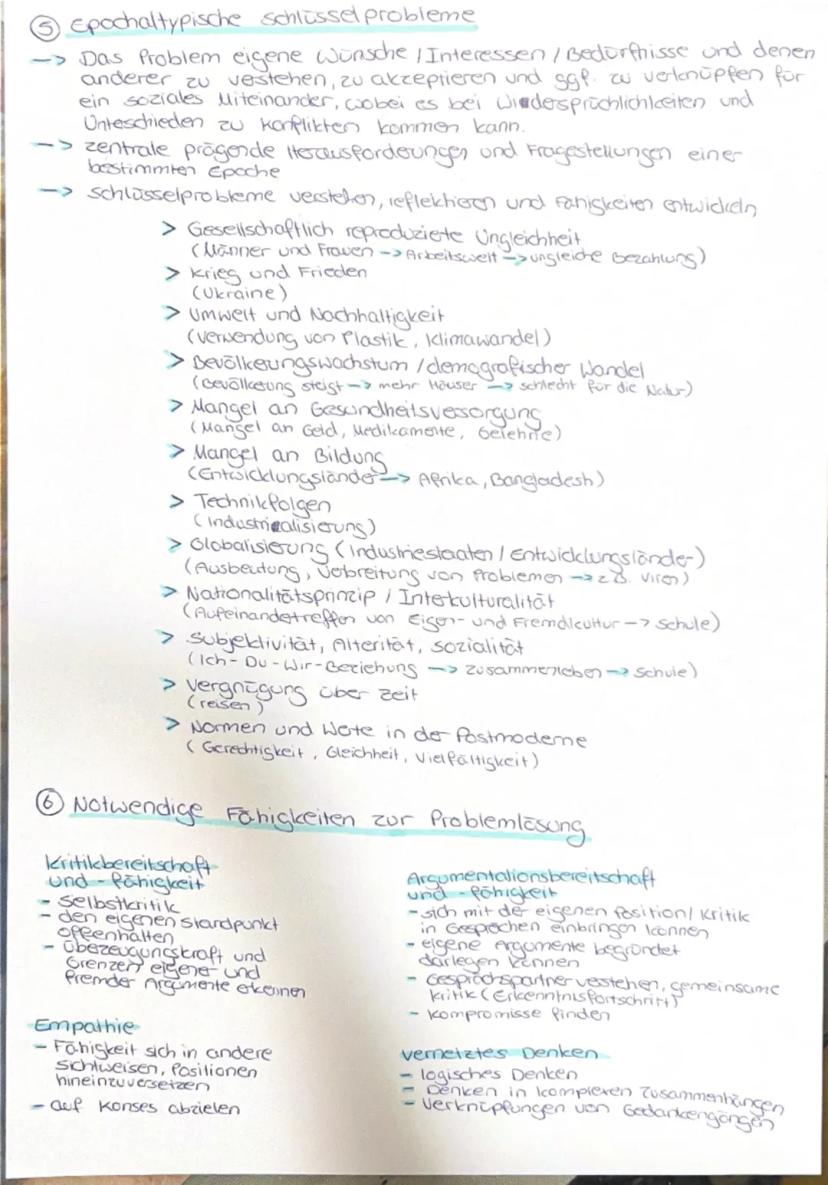 ⑤ Epochaltypische Schlüsselprobleme
--> Das Problem eigene Wünsche / Interessen / Bedürfnisse und denen
anderer zu verstehen, zu akzeptieren und ggf. zu verknüpfen für
ein soziales Miteinander, wobei es bei Wiedersprüchlichkeiten und
Unteschieden zu Konflikten kommen kann.
--> zentrale prägende Herausforderungen und Fragestellungen einer
bestimmten Epoche
--> Schlüsselprobleme verstehen, reflektieren und Fähigkeiten entwickeln
> Gesellschaftlich reproduzierte Ungleichheit
(Männer und Frauen -> Arbeitswelt -> ungleiche Bezahlung)
> Krieg und Frieden
(Ukraine)
> Umwelt und Nachhaltigkeit
(Verwendung von Plastik, Klimawandel)
> Bevölkerungswachstum / demografischer Wandel
(Bevölkerung steigt -> mehr Häuser -> schlecht für die Natur)
> Mangel an Gesundheitsversorgung
(Mangel an Geld, Medikamente, Gelehrte)
> Mangel an Bildung
(Entwicklungsländer -> Afrika, Bangladesh)
> Technikfolgen
(Industriealisierung)
> Globalisierung (Industriestaaten / Entwicklungsländer)
(Ausbeutung, Verbreitung von Problemen -> z.B. Viren)
> Nationalitätsprinzip / Interkulturalität
(Aufeinandetreffen von Eigen- und Fremdkultur -> Schule)
> Subjektivität, Alterität, Sozialität
(Ich-Du-Wir-Beziehung -> Zusammenleben -> Schule)
> Vergnügung über Zeit
(reisen)
> Normen und Werte in der Postmoderne
(Gerechtigkeit, Gleichheit, Vielfältigkeit)
⑥ Notwendige Fähigkeiten zur Problemlösung
Kritikbereitschaft
und -fähigkeit
- Selbstkritik
- den eigenen Standpunkt
offenhalten
- Überzeugungskraft und
Grenzen eigener und
fremder Argumente erkennen
Empathie
- Fähigkeit sich in andere
Sichtweisen, Positionen
hineinzuversetzen
- auf Konses abzielen
Argumentationsbereitschaft
und -fähigkeit
- sich mit der eigenen Position/Kritik
in Gesprächen einbringen können
- eigene Argumente begründet
darlegen können
- Gesprächspartner verstehen, gemeinsame
Kritik (Erkenntnisfortschritt)
- Kompromisse finden
vernetztes Denken
- logisches Denken
- Denken in komplexen Zusammenhängen
- Verknüpfungen von Gedankengängen